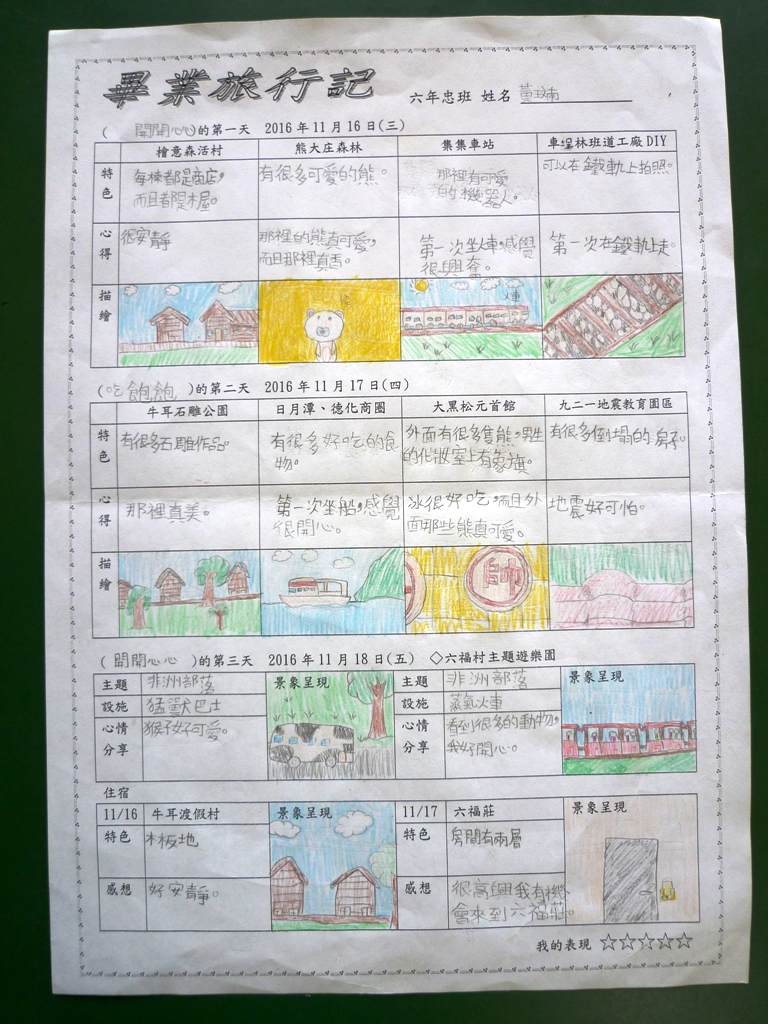 畢業旅行記
六年忠班 姓名
( 開開心心)的第一天 2016年11月16日(三)
檜意森活村 熊大庄森林 集集車站 車埕林班道工廠DIY
特色 每棟都是商店,而且都是木屋。 有很多可愛的熊。 那裡有可愛的機器人。 可以在鐵軌上拍照。
心得 很安靜 那裡的熊真可愛,而且那裡真香。 第一次坐火車,感覺很興奮。 第一次在鐵軌上走。
描繪
(吃飽飽 )的第二天 2016年11月17日(四)
牛耳石雕公園 日月潭、德化商圈 大黑松元首館 九二一地震教育園區
特色 有很多石雕作品。 有很多好吃的食物。 外面有很多隻熊,男生的化妝室上有象旗。 有很多倒塌的房子。
心得 那裡真美。 第一次坐船,感覺很開心。 冰很好吃,而且外面那些熊真可愛。 地震好可怕。
描繪
( 開開心心 )的第三天 2016年11月18日(五) ◇六福村主題遊樂園
主題 非洲部落 景象呈現 主題 非洲部落 景象呈現
設施 猛獸巴士 設施 蒸氣火車
心情分享 猴子好可愛。 心情分享 看到很多的動物,我好開心。
住宿
11/16 牛耳渡假村 景象呈現 11/17 六福莊 景象呈現
特色 木板地 特色 房間有兩層
感想 好安靜。 感想 很高興我有機會來到六福莊。
我的表現 ☆☆☆☆☆